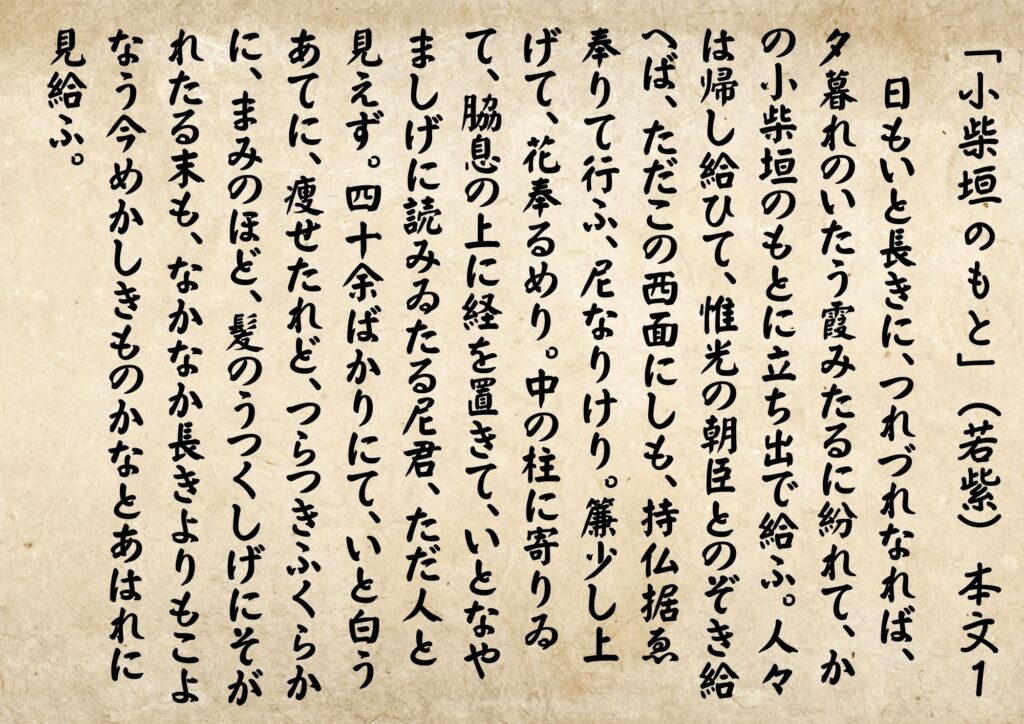 「小柴垣のもと」（若紫）　本文１
日もいと長きに、つれづれなれば、
夕暮れのいたう霞みたるに紛れて、か
の小柴垣のもとに立ち出で給ふ。人々
は帰し給ひて、惟光の朝臣とのぞき給
へば、ただこの西面にしも、持仏据ゑ
奉りて行ふ、尼なりけり。簾少し上
げて、花奉るめり。中の柱に寄りゐ
て、脇息の上に経を置きて、いとなや
ましげに読みゐたる尼君、ただ人と
見えず。四十余ばかりにて、いと白う
あてに、痩せたれど、つらつきふくらか
に、まみのほど、髪のうつくしげにそが
れたる末も、なかなか長きよりもこよ
なう今めかしきものかなとあはれに
見給ふ。